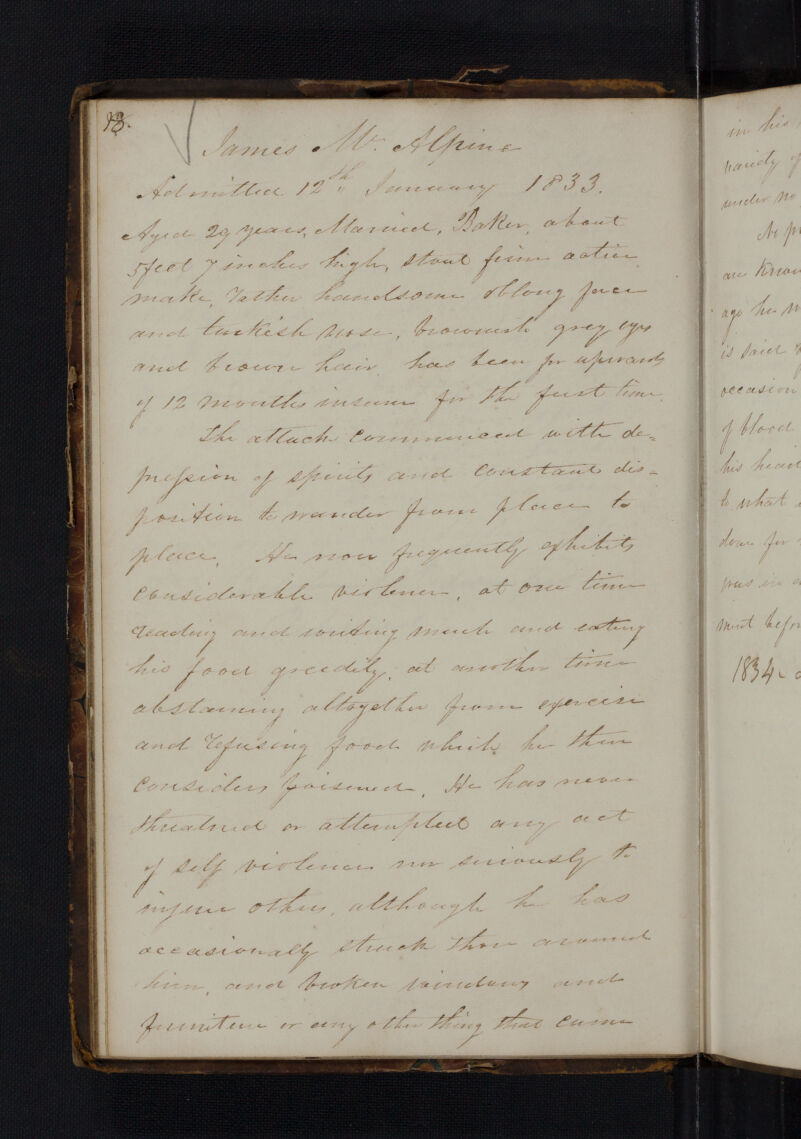 18.
James Mc. Alpine
Admitted 12th January 1833.
Aged 29 years, Married, Baker, about
5 feet 7 inches high, stout firm active
make, rather handsome oblong face
and turkish nose, brownish grey eyes
and brown hair, has been for upwards
of 12 months insane for the first time.
The attack commenced with de=
pression of spirits and constant dis=
position to wander from place to
place. He now frequently exhibits
considerable violence, at one time
reading and writing much and eating
his food greedily, at another time
abstaining altogether from exercise
and refusing food which he then
considers poisened. He has never
threatned or attempted any act
of self violence nor seriously to
injure others, although he has
occasionally struck those around
him, and broken windows and
furniture or any other thing that came
in his
variety of
under no
No
are known
ago he
is said
occasion
of blood
his head
to what
down for
was in
ment before
1834